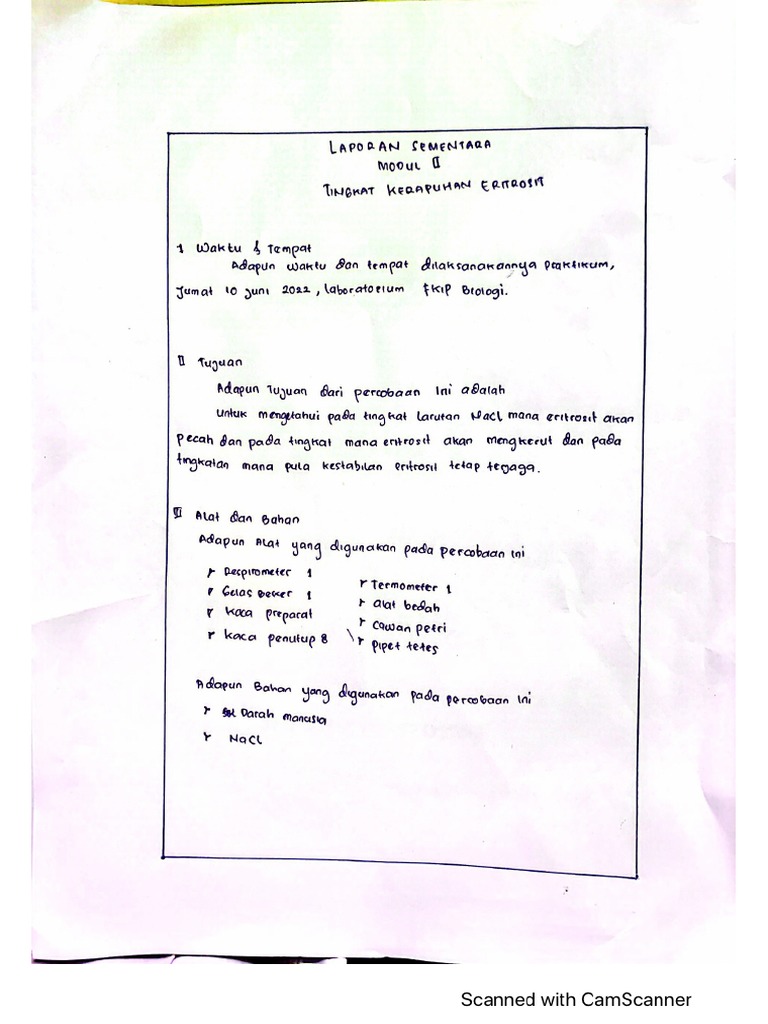 LAPORAN SEMENTARA
MODUL II
TINGKAT KERAPUHAN ERITROSIT
I Waktu & Tempat
Adapun waktu dan tempat dilaksanakannya praktikum,
Jumat 10 Juni 2022, laboratorium FKIP Biologi.
II Tujuan
Adapun Tujuan dari percobaan ini adalah
Untuk mengetahui pada tingkat larutan NaCl mana eritrosit akan
pecah dan pada tingkat mana eritrosit akan mengkerut dan pada
tingkatan mana pula kestabilan eritrosit tetap terjaga.
III Alat dan Bahan
Adapun Alat yang digunakan pada percobaan ini
Respirometer 1
Gelas Beker 1
Kaca preparat
Kaca penutup 8
Termometer 1
Alat bedah
Cawan petri
Pipet tetes
Adapun Bahan yang digunakan pada percobaan ini
Darah manusia
NaCl
Scanned with CamScanner